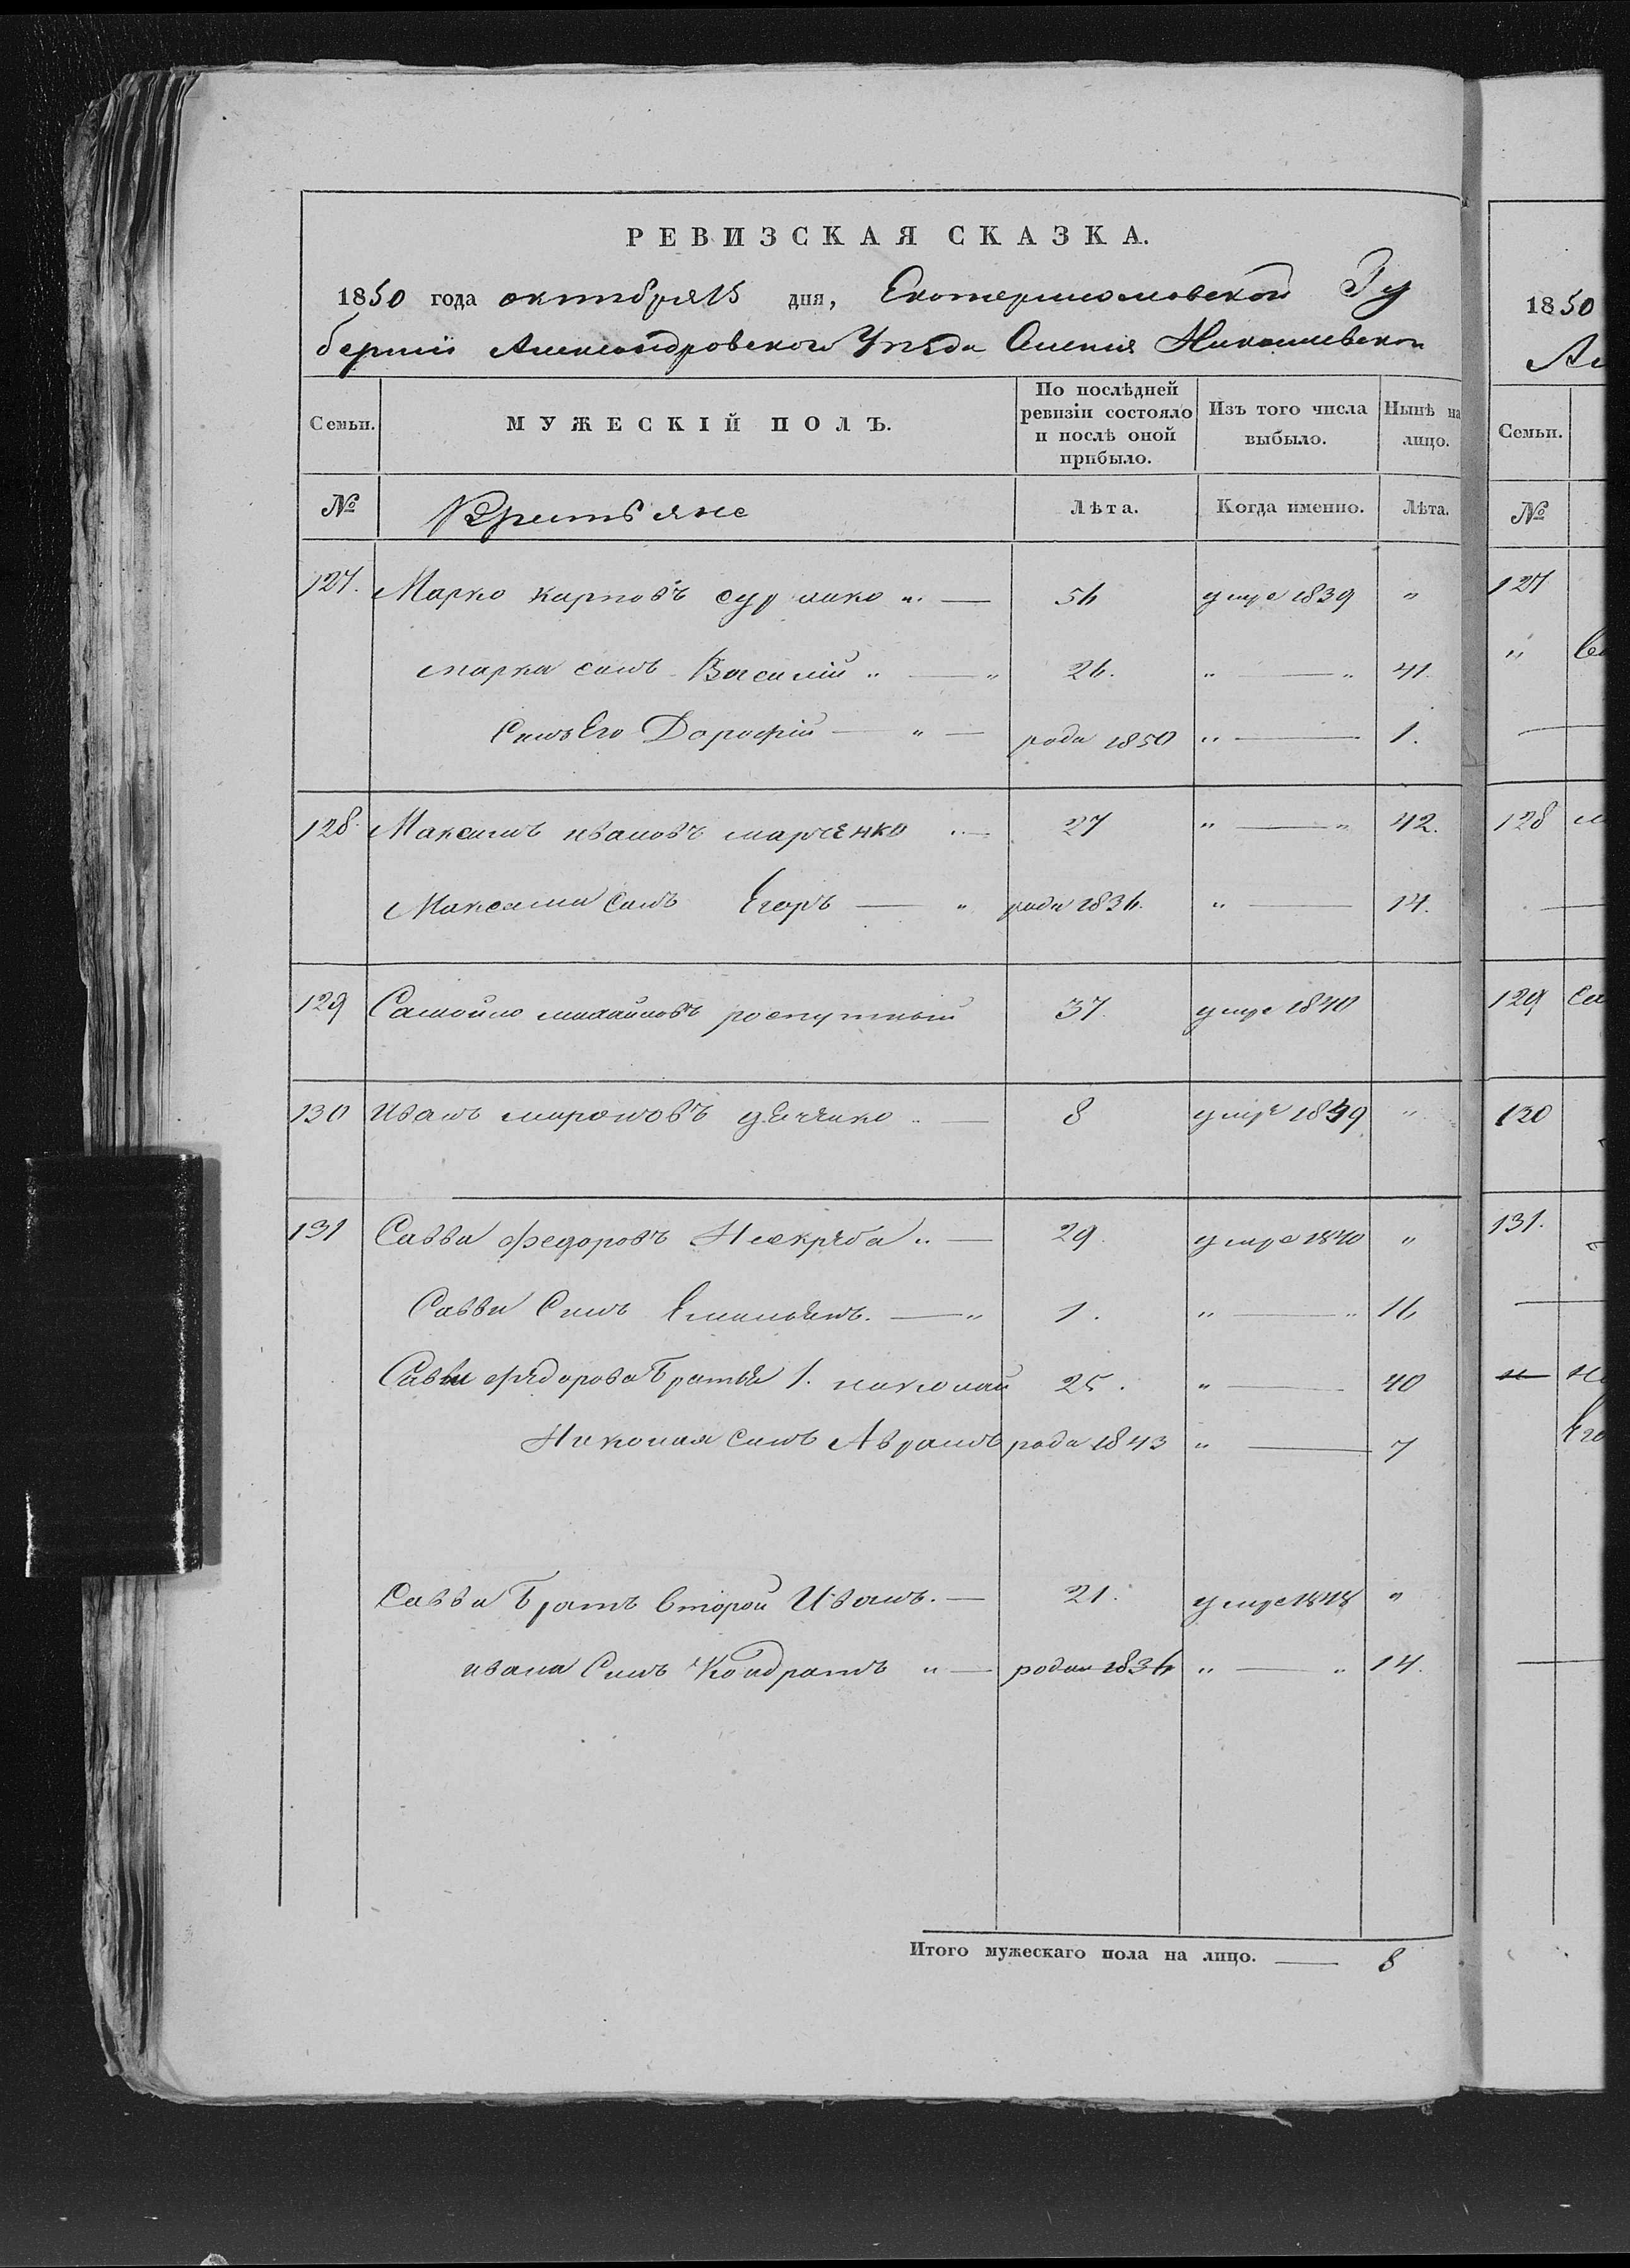 РЕВИЗСКАЯ СКАЗКА.
1850 года октября 15 дня, Екатеринославской Гу
берніи Александровского Уѣзда Николаевской
Семьи.
МУЖЕСКІЙ ПОЛЪ.
По послѣдней ревизіи состояло и послѣ оной прибыло.
Изъ того числа выбыло.
Нынѣ на лицо.
№ Крестьяне Лѣта. Когда именно. Лѣта.
127. Марко карповъ „ — 56 умре 1839 „
марка сынъ Василий „ — „ 26. „ — „ 41.
Сынъ Его Дорофій — „ — рода 1850 „ — 1.
128. Максимъ ивановъ марченко „ — 27 „ — „ 42.
Максима сынъ Егоръ — „ рода 1836. „ — 14.
129 Самойло михайловъ роспутный 37. умре 1840
130 Иванъ мироновъ дяченко „ — 8 умре 1849 „
131 Савва федоровъ Наскряба „ — 29. умре 1840 „
Саввы Сынъ Емильянъ. — „ 1. „ — „ 16
Саввы федорова братья 1. николай 25. „ — 40
Николая сынъ Аврамъ рода 1843 „ — 7
Савва братъ второй Иванъ. — 21. умре 1848 „
ивана Сынъ Кондратъ „ — рода 1836 „ — „ 14.
Итого мужескаго пола на лицо. — 8
1850
Ал
Семьи.
№
127
„
128
129 Са
130
131.
Его